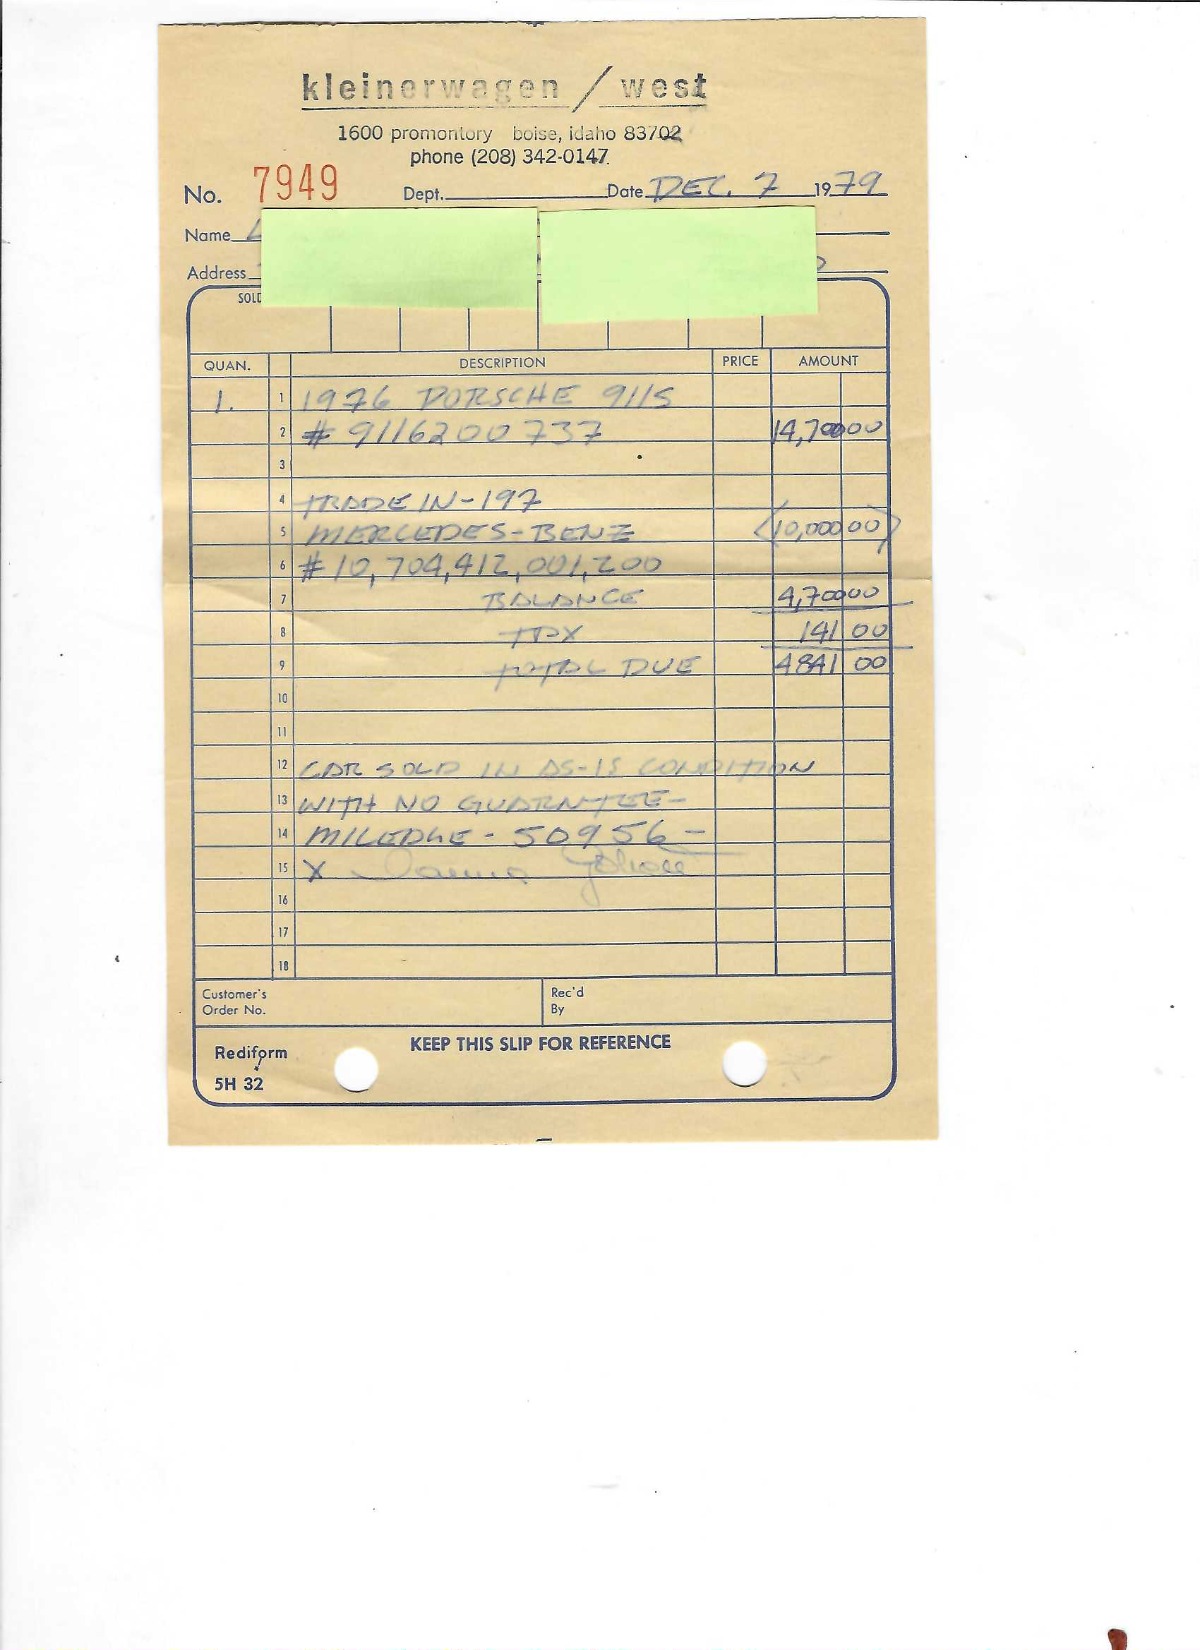 kleinerwagen / west
1600 promontory boise, idaho 83702
phone (208) 342-0147
No. 7949 Dept. Date DEC. 7 1979
Name
Address
SOLD
QUAN. DESCRIPTION PRICE AMOUNT
1. 1 1976 PORSCHE 911S
2 # 9116200737 14,700 00
3
4 TRADE IN - 197
5 MERCEDES-BENZ <10,000 00>
6 #10,704,412,001,200
7 BALANCE 4,700 00
8 TAX 141 00
9 TOTAL DUE 4841 00
10
11
12 CAR SOLD IN AS-IS CONDITION
13 WITH NO GUARANTEE-
14 MILEAGE - 50956 -
15 X
16
17
18
Customer's Order No. Rec'd By
KEEP THIS SLIP FOR REFERENCE
Rediform
5H 32